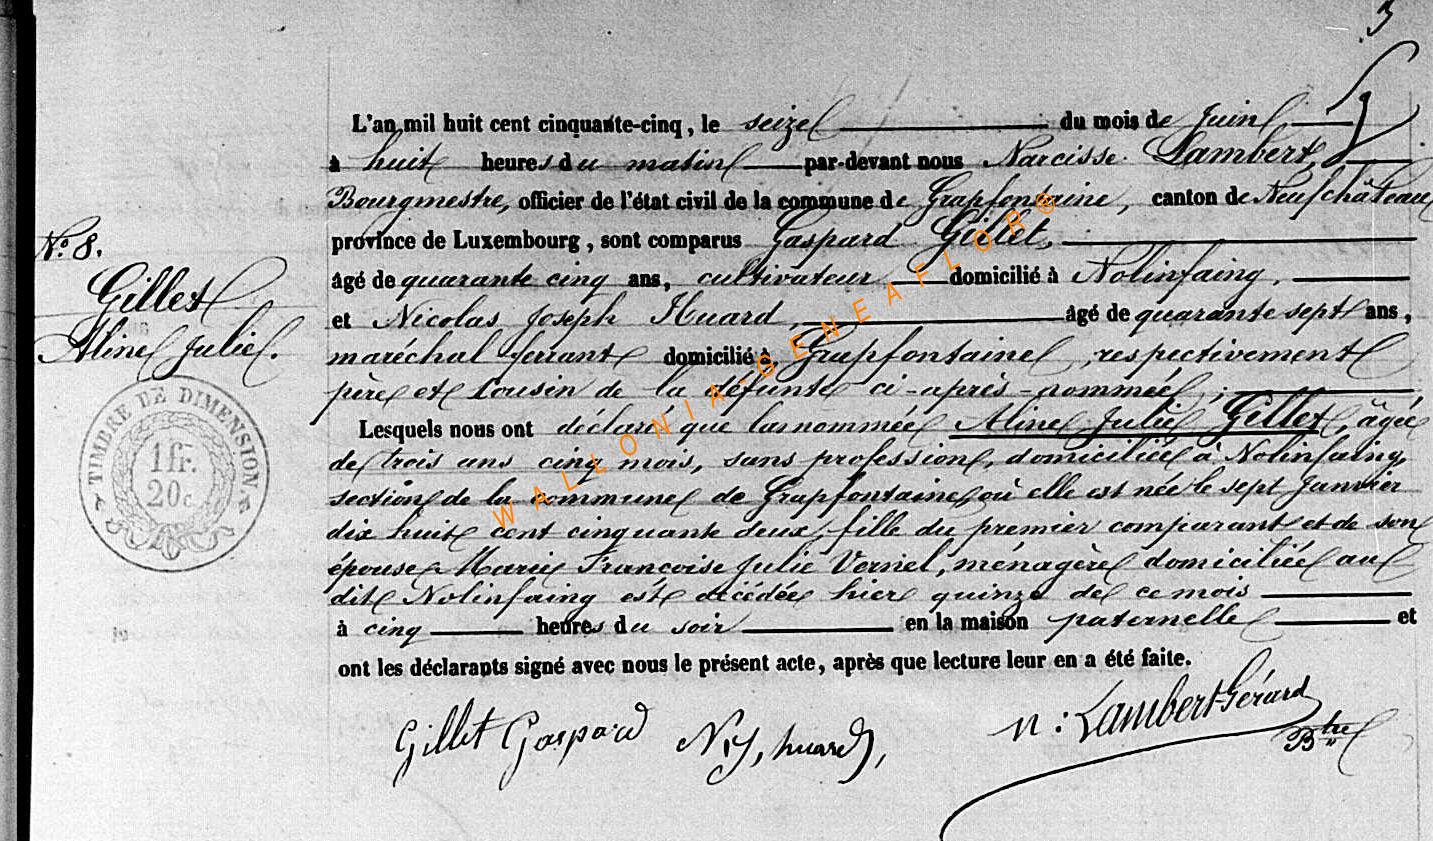 3
L'an mil huit cent cinquante-cinq, le seize du mois de Juin
à huit heures du matin par-devant nous Narcisse Lambert,
Bourgmestre, officier de l'état civil de la commune de Grapfontaine, canton de Neufchâteau
province de Luxembourg, sont comparus Gaspard Gillet,
âgé de quarante cinq ans, cultivateur domicilié à Nolinfaing,
et Nicolas Joseph Huard, âgé de quarante sept ans,
maréchal ferrant domicilié à Grapfontaine, respectivement
père et Cousin de la défunte ci-après-nommée;
Lesquels nous ont déclaré que la nommée Aline Julie Gillet, âgée
de trois ans cinq mois, sans profession, domiciliée à Nolinfaing,
section de la commune de Grapfontaine, où elle est née le sept Janvier
dix huit cent cinquante deux, fille du premier comparant et de son
épouse Marie Francoise Julie Vernel, ménagère domiciliée au
dit Nolinfaing est décédée hier quinze de ce mois
à cinq heures du soir en la maison paternelle et
ont les déclarants signé avec nous le présent acte, après que lecture leur en a été faite.
N.° 8.
Gillet
Aline Julie.
TIMBRE DE DIMENSION
1 fr.
20 c.
WALLONIA-GENEAFLOR©
Gillet Gaspard
huard,
N: Lambert-Gérard
Btre